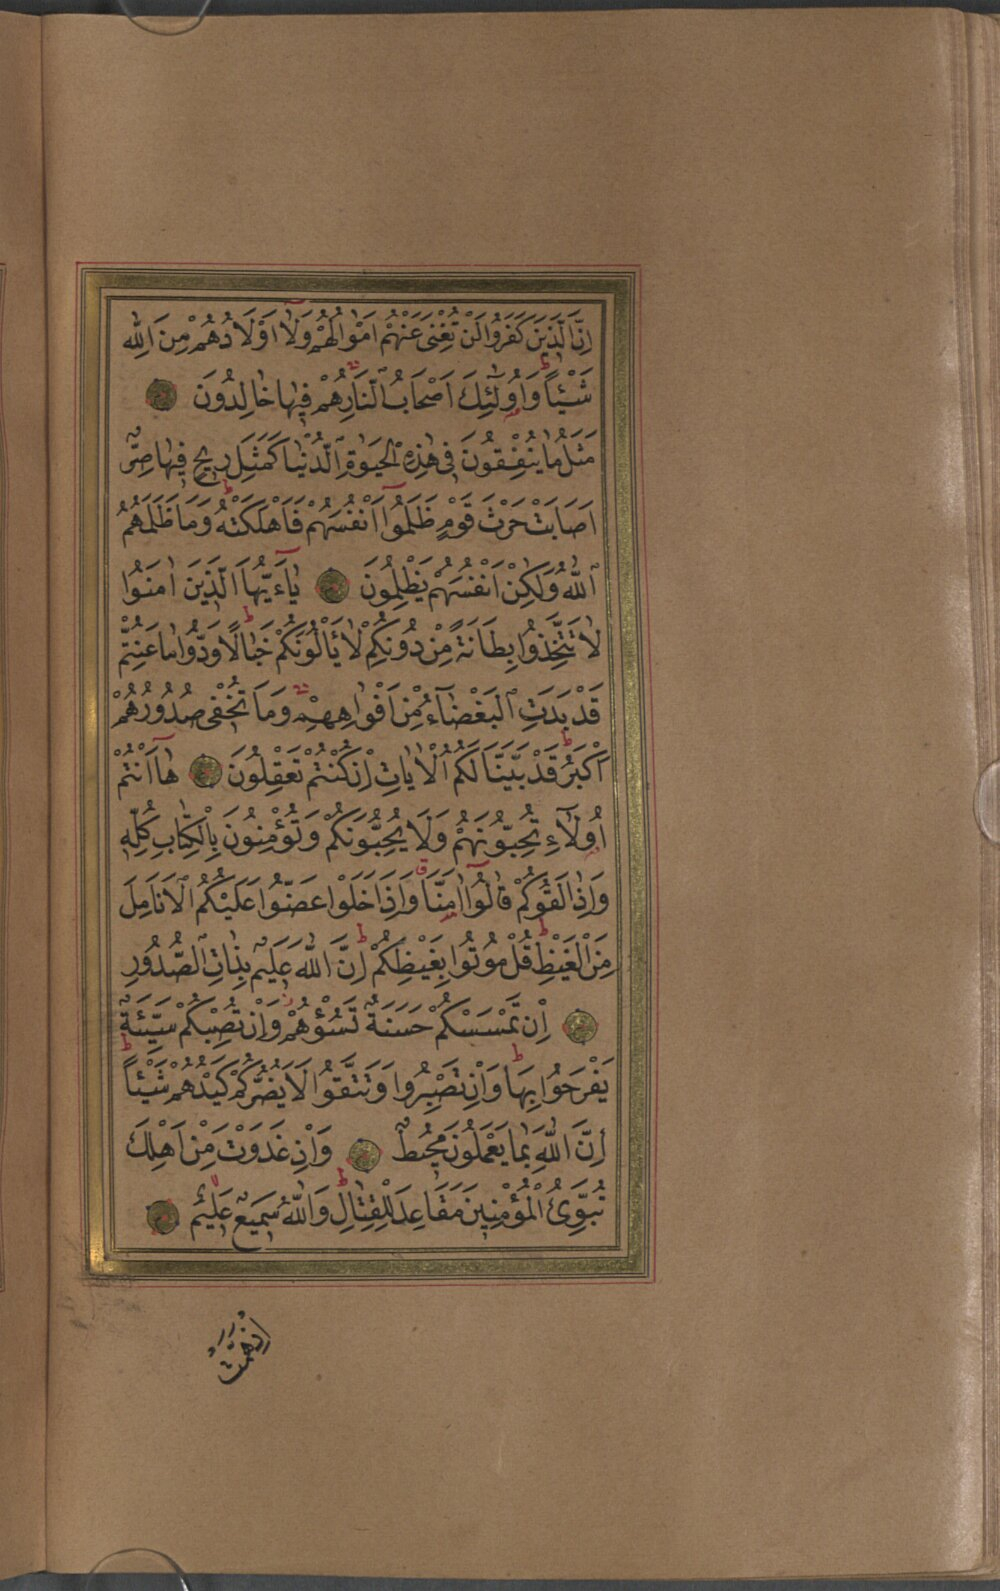 اِنَّ الَّذِينَ كَفَرُوا لَنْ تُغْنِىَ عَنْهُمْ اَمْوَالُهُمْ وَلَا اَوْلَادُهُمْ مِنَ اللّٰهِ
شَيْئًا وَاُولٰئِكَ اَصْحَابُ النَّارِ هُمْ فِيهَا خَالِدُونَ
مَثَلُ مَا يُنْفِقُونَ فِى هٰذِهِ الْحَيٰوةِ الدُّنْيَا كَمَثَلِ رِيحٍ فِيهَا صِرٌّ
اَصَابَتْ حَرْثَ قَوْمٍ ظَلَمُوا اَنْفُسَهُمْ فَاَهْلَكَتْهُ وَمَا ظَلَمَهُمُ
اللّٰهُ وَلٰكِنْ اَنْفُسَهُمْ يَظْلِمُونَ يَاءَيُّهَا الَّذِينَ اٰمَنُوا
لَا تَتَّخِذُوا بِطَانَةً مِنْ دُونِكُمْ لَا يَأْلُونَكُمْ خَبَالًا وَدُّوا مَا عَنِتُّمْ
قَدْ بَدَتِ الْبَغْضَاءُ مِنْ اَفْوَاهِهِمْ وَمَا تُخْفِى صُدُورُهُمْ
اَكْبَرُ قَدْ بَيَّنَّا لَكُمُ الْاٰيَاتِ اِنْ كُنْتُمْ تَعْقِلُونَ هَا اَنْتُمْ
اُولَاءِ تُحِبُّونَهُمْ وَلَا يُحِبُّونَكُمْ وَتُؤْمِنُونَ بِالْكِتَابِ كُلِّهِ
وَاِذَا لَقُوكُمْ قَالُوا اٰمَنَّا وَاِذَا خَلَوْا عَضُّوا عَلَيْكُمُ الْاَنَامِلَ
مِنَ الْغَيْظِ قُلْ مُوتُوا بِغَيْظِكُمْ اِنَّ اللّٰهَ عَلِيمٌ بِذَاتِ الصُّدُورِ
اِنْ تَمْسَسْكُمْ حَسَنَةٌ تَسُؤْهُمْ وَاِنْ تُصِبْكُمْ سَيِّئَةٌ
يَفْرَحُوا بِهَا وَاِنْ تَصْبِرُوا وَتَتَّقُوا لَا يَضُرُّكُمْ كَيْدُهُمْ شَيْئًا
اِنَّ اللّٰهَ بِمَا يَعْمَلُونَ مُحِيطٌ وَاِذْ غَدَوْتَ مِنْ اَهْلِكَ
تُبَوِّئُ الْمُؤْمِنِينَ مَقَاعِدَ لِلْقِتَالِ وَاللّٰهُ سَمِيعٌ عَلِيمٌ
اِذْ هَمَّتْ